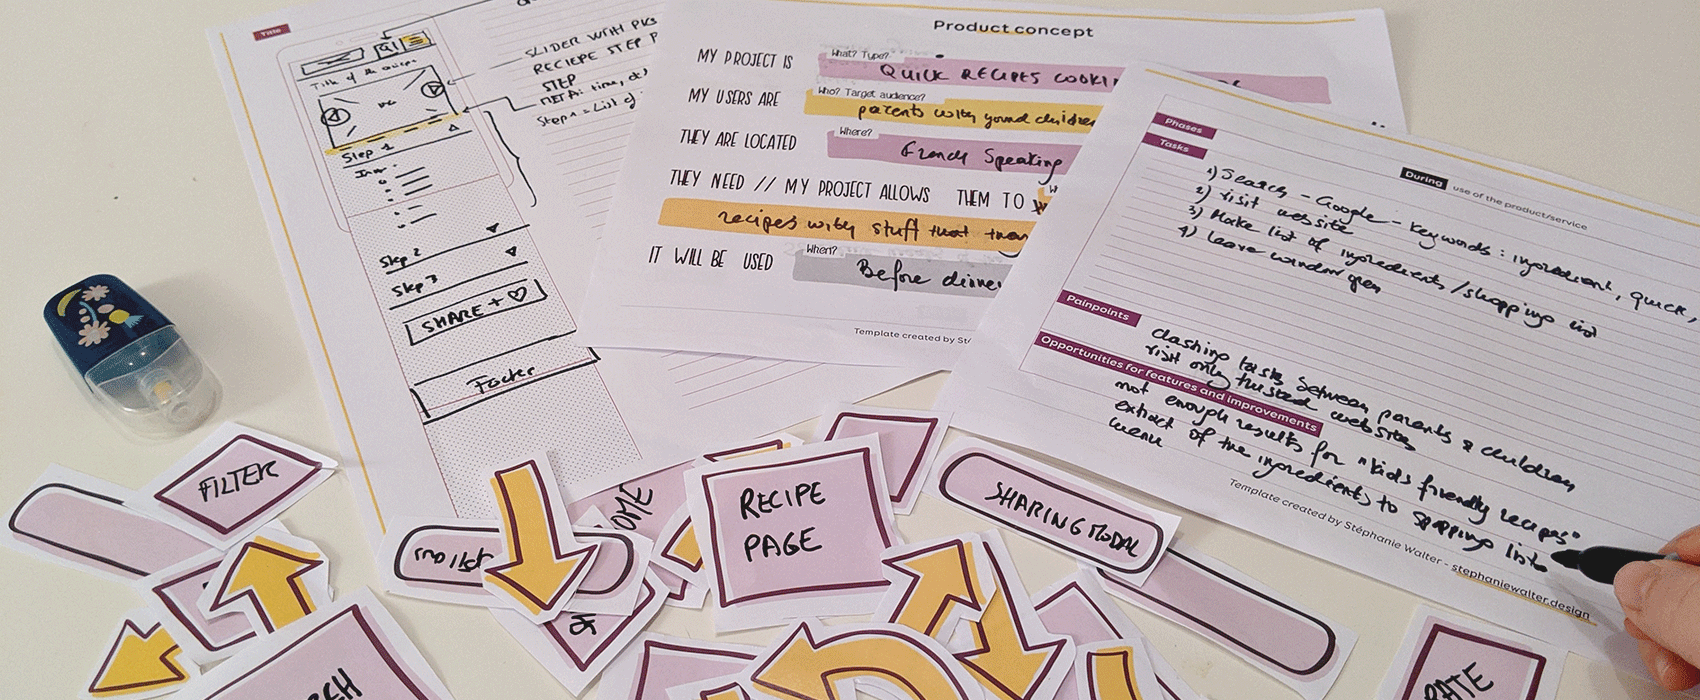 Title
Title of the recipe
Step 1
Step 2
Step 3
SHARE +
Footer
SLIDER WITH
RECIEPE STEP
STEP
META: time,
Step 1 = List of
Product concept
MY PROJECT IS
What? Type?
QUICK RECIPES
MY USERS ARE
Who? Target audience?
parents with young children
THEY ARE LOCATED
Where?
French Speaking
THEY NEED // MY PROJECT ALLOWS THEM TO
recipes with stuff that
IT WILL BE USED
When?
Before
Template created by
During use of the product/service
Phases
Tasks
1) Search - Google - keywords: ingredient, quick,
2) visit website
3) Make list of ingredients / shopping list
4) Leave window open
Painpoints
clashing tasks between parents & children
visit only trusted website
Opportunities for features and improvements
not enough results for "kids friendly recipes"
extract of the ingredients to shopping list
menu
Template created by Stéphanie Walter - stephaniewalter.design
FILTER
RECIPE
PAGE
SHARING MODAL